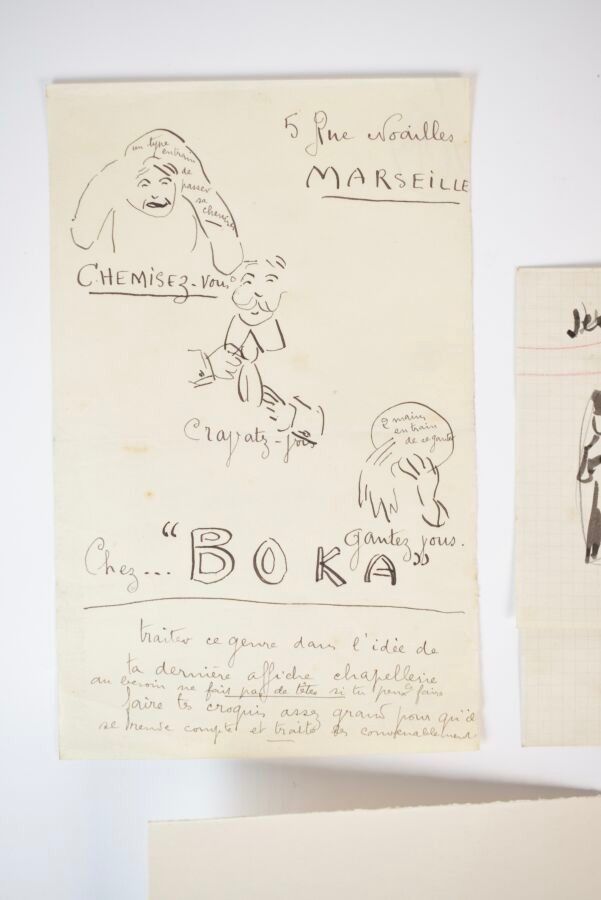 5 Rue Noailles
MARSEILLE
un type
entrain
de
passer
sa
chemise
CHEMISEZ-vous
Cravatz-vous
2 mains
en train
de ce ganter
gantez vous.
Chez... "BOKA"
traiter ce genre dans l'idée de
ta dernière affiche chapellerie
au besoin ne fais pas de têtes si tu peux faire
faire tes croquis assez grand pour qu'il
se rende compte et traite les convenablement